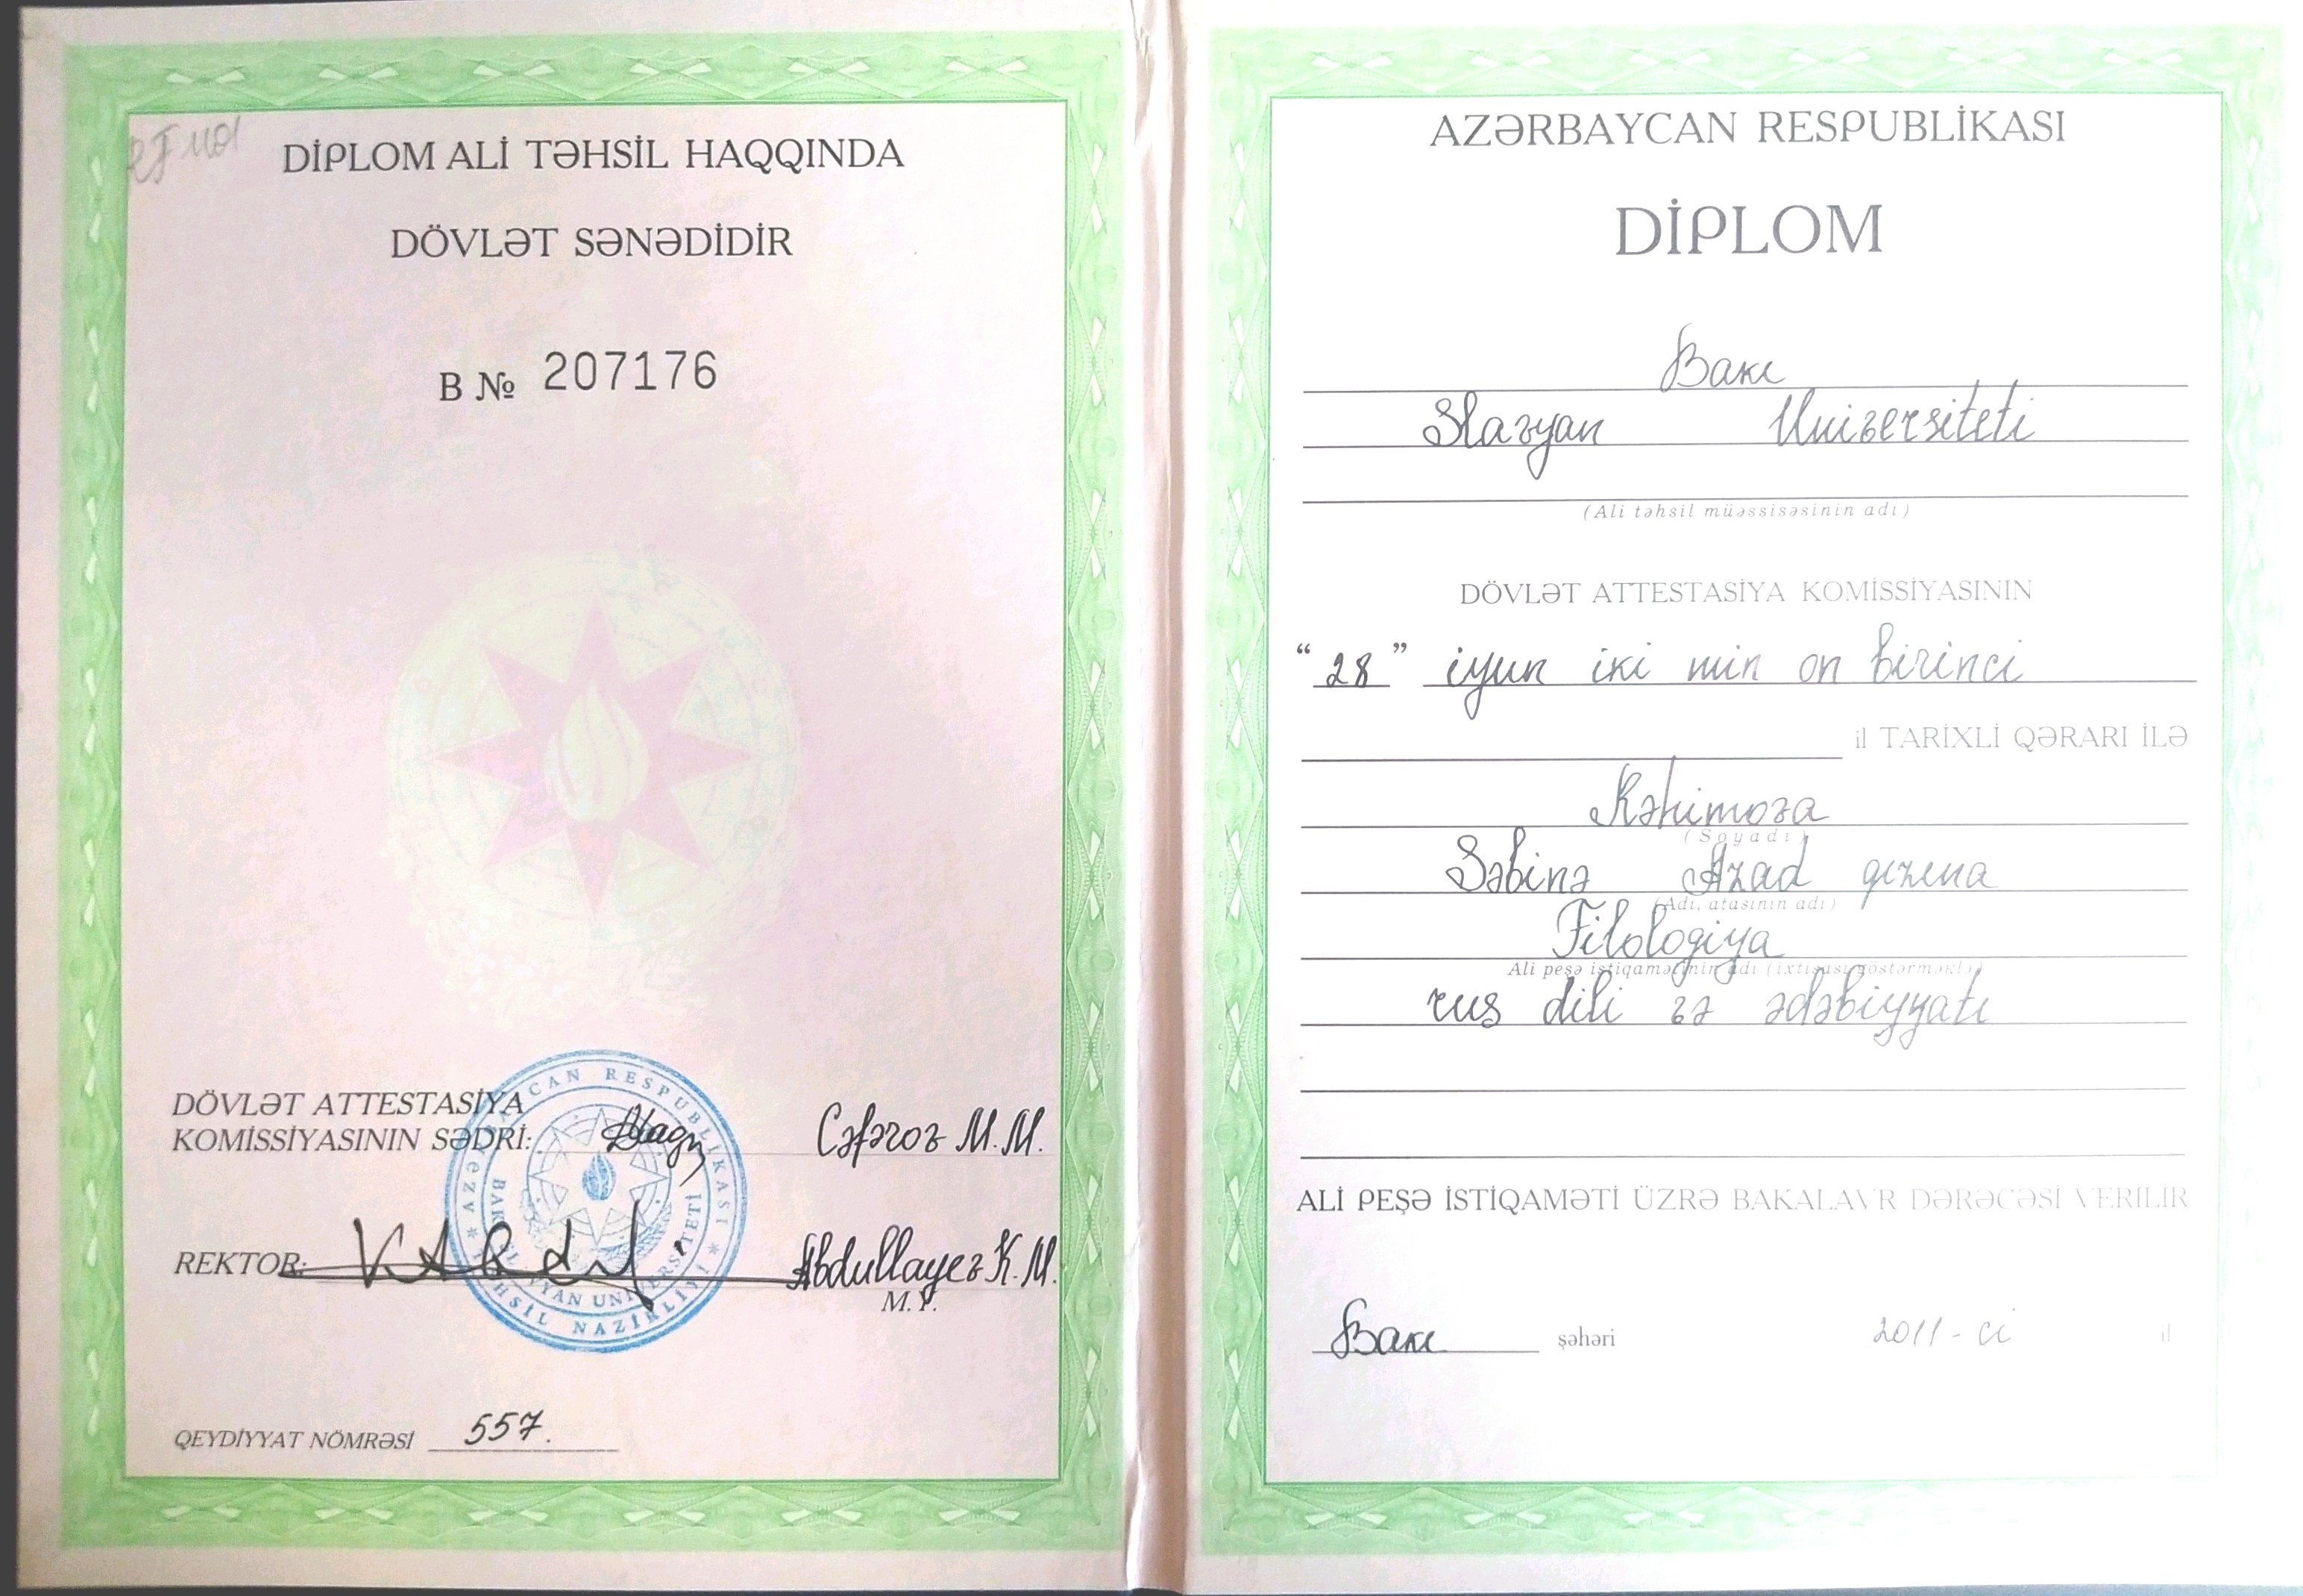 DİPLOM ALİ TƏHSİL HAQQINDA
DÖVLƏT SƏNƏDİDİR
B № 207176
DÖVLƏT ATTESTASİYA
KOMİSSİYASININ SƏDRİ: Cəfərov M.M.
REKTOR: Abdullayev K.M.
M.Y.
AZƏRBAYCAN RESPUBLİKASI
TƏHSİL NAZİRLİYİ
BAKI SLAVYAN UNİVERSİTETİ
QEYDİYYAT NÖMRƏSİ 557.
AZƏRBAYCAN RESPUBLİKASI
DİPLOM
Bakı
Slavyan Universiteti
(Ali təhsil müəssisəsinin adı)
DÖVLƏT ATTESTASİYA KOMİSSİYASININ
“28” iyun iki min on birinci
il TARİXLİ QƏRARI İLƏ
Rəhimova
(Soyadı)
Səbinə Azad qızına
(Adı, atasının adı)
Filologiya
Ali peşə istiqamətinin adı (ixtisası göstərməklə)
rus dili və ədəbiyyatı
ALİ PEŞƏ İSTİQAMƏTİ ÜZRƏ BAKALAVR DƏRƏCƏSİ VERİLİR
Bakı şəhəri 2011-ci il